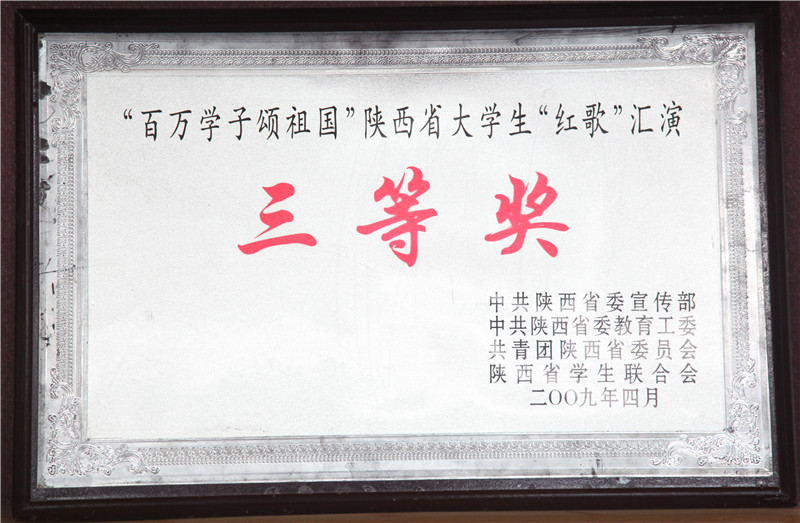 “百万学子颂祖国”陕西省大学生“红歌”汇演
三等奖
中共陕西省委宣传部
中共陕西省委教育工委
共青团陕西省委员会
陕西省学生联合会
二〇〇九年四月